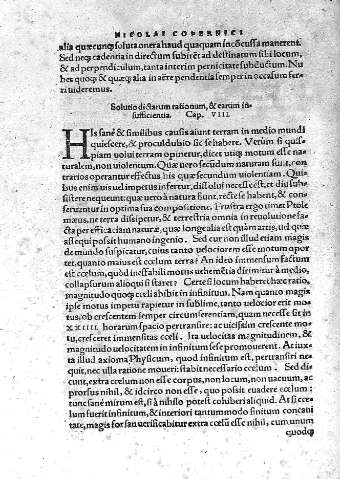 NICOLAI COPERNICI
alia quæcunq; soluta onera haud quaquam incōcussa manerent.
Sed neq; cadentia in directum subirēt ad destinatum sibi locum,
& ad perpendiculum, tanta interim pernicitate subductum. Nu
bes quoq; & quæq; alia in aëre pendentia semper in occasum fer-
ri videremus.
Solutio dictarum rationum, & earum in-
sufficientia. Cap. VIII.
HIs sanè & similibus causis aiunt terram in medio mundi
quiescere, & proculdubio sic se habere. Verùm si quis-
piam voluri terram opinetur, dicet utiq; motum esse na-
turalem, non violentum. Quæ verò secundum naturam sunt, con
trarios operantur effectus his quæ secundum violentiam. Qui-
bus enim vis vel impetus infertur, dissolui necesse est, et diu subsi-
stere nequeunt: quæ verò à natura fiunt, rectè se habent, & con
seruantur in optima sua compositione. Frustra ergo timet Ptole
mæus, ne terra dissipetur, & terrestria omnia in reuolutione fa-
cta per efficaciam naturæ, quæ longè alia est quàm artis, uel quæ
assequi possit humano ingenio. Sed cur non illud etiam magis
de mundo suspicatur, cuius tanto uelociorem esse motum opor
tet, quanto maius est cœlum terra? An ideo immensum factum
est cœlum, quod ineffabili motus uehemētia dirimitur à medio,
collapsurum alioqui si staret? Certè si locum haberet hæc ratio,
magnitudo quoq; cœli abibit in infinitum. Nam quanto magis
ipse motus impetu rapietur in sublime, tanto uelocior erit mo-
tus, ob crescentem semper circumferentiam, quam necesse sit in
XXIIII. horarum spacio pertransire: ac uicissim crescente mo-
tu, cresceret immensitas cœli. Ita uelocitas magnitudinem, &
magnitudo uelocitatem in infinitum sese promouerent. At iux-
ta illud axioma Physicum, quod infinitum est, pertransiri ne-
quit, nec ulla ratione moueri: stabit necessario cœlum. Sed di-
cunt, extra cœlum non esse corpus, non locum, non uacuum, ac
prorsus nihil, & idcirco non esse, quo possit euadere cœlum:
tunc sanè mirum est, si à nihilo potest cohiberi aliquid. At si cœ-
lum fuerit infinitum, & interiori tantummodo finitum concaui
tate, magis forsan uerificabitur extra cœlum esse nihil, cum unum
quodq;